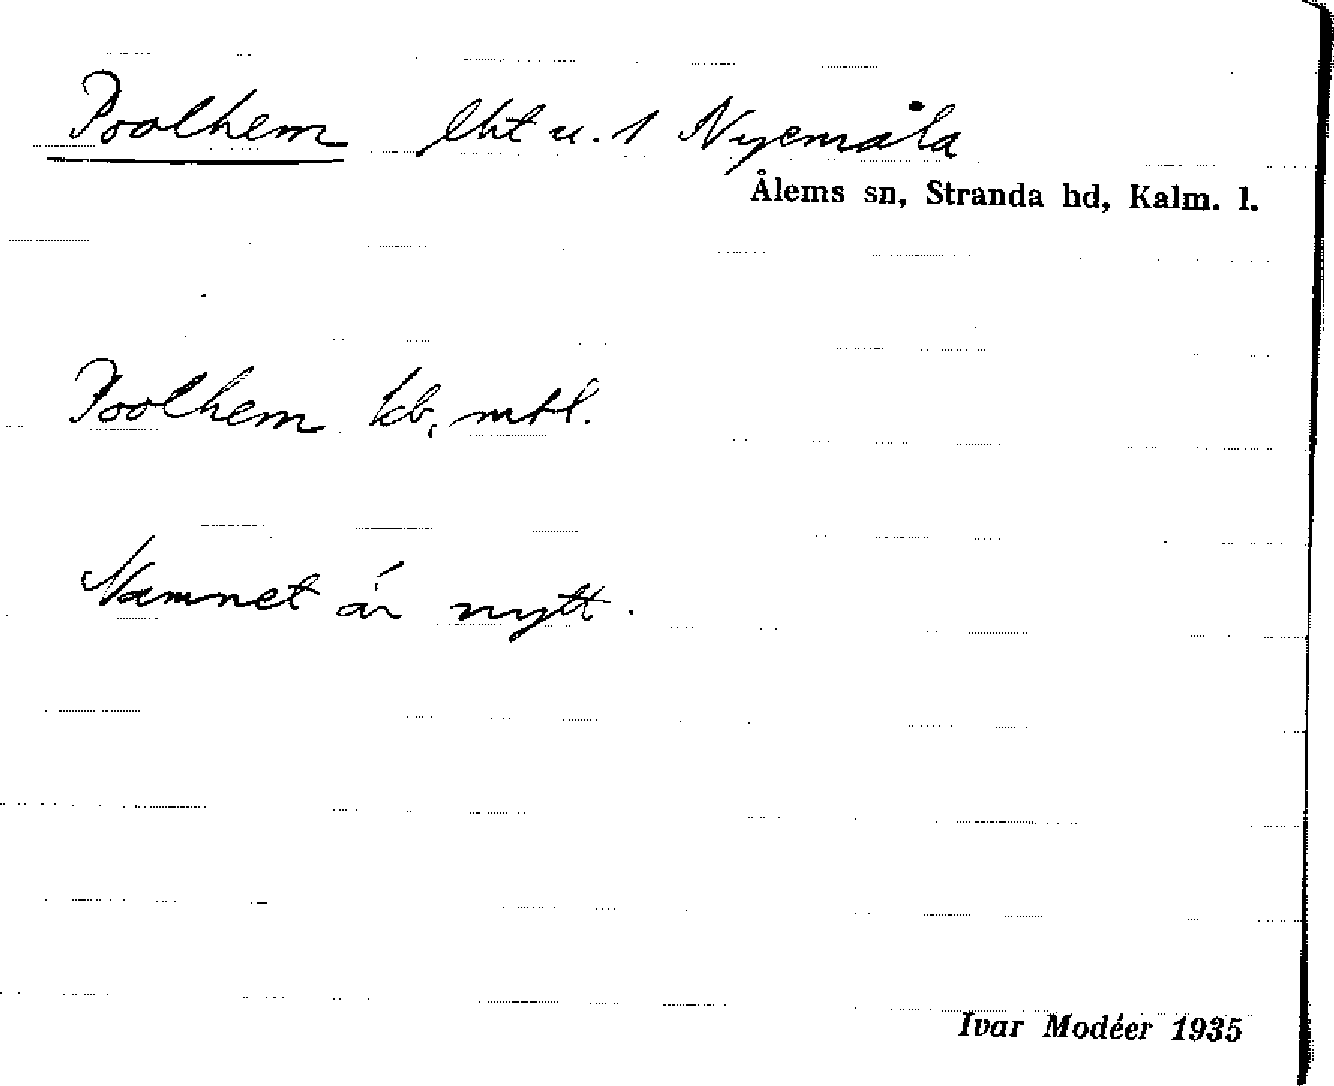 Poolhem lht u. 1 Nyemåla
Ålems sn, Stranda hd, Kalm. l.
Poolhem kb, mtl.
Namnet är nytt.
Ivar Modéer 1935